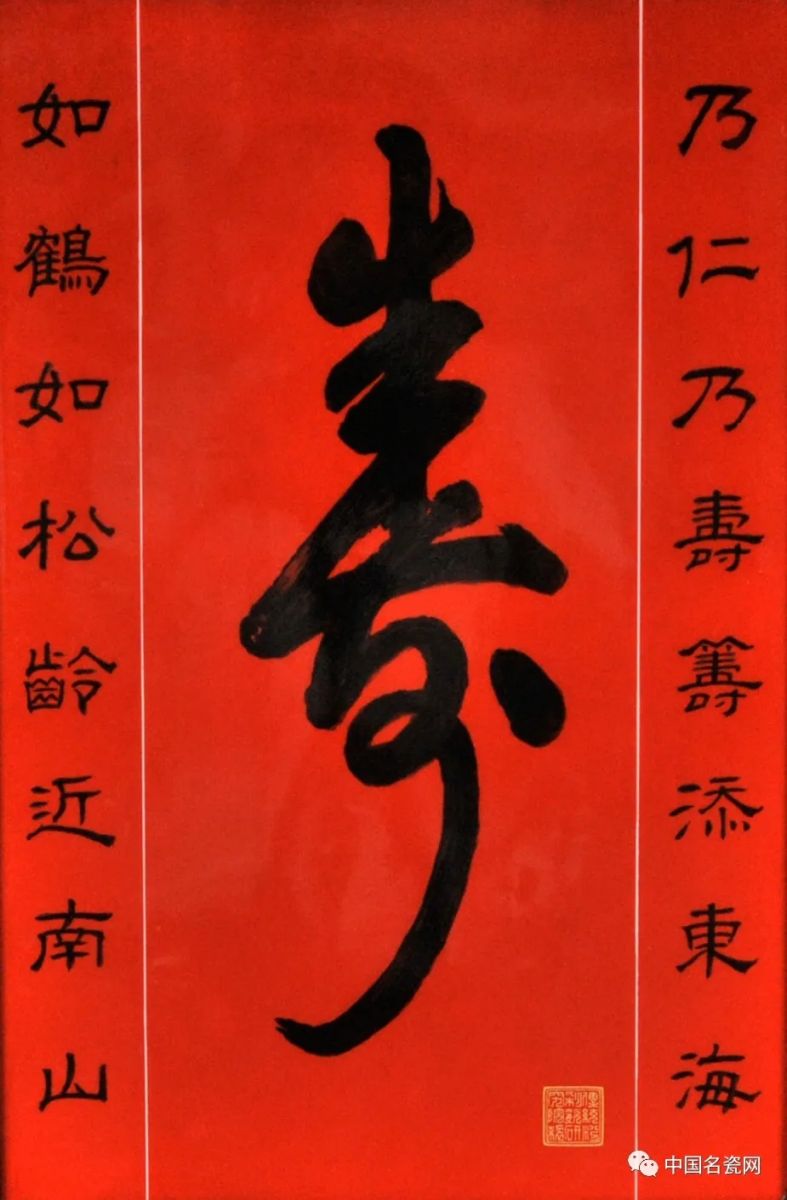 乃仁乃壽籌添東海
壽
如鶴如松齡近南山
中国名瓷网